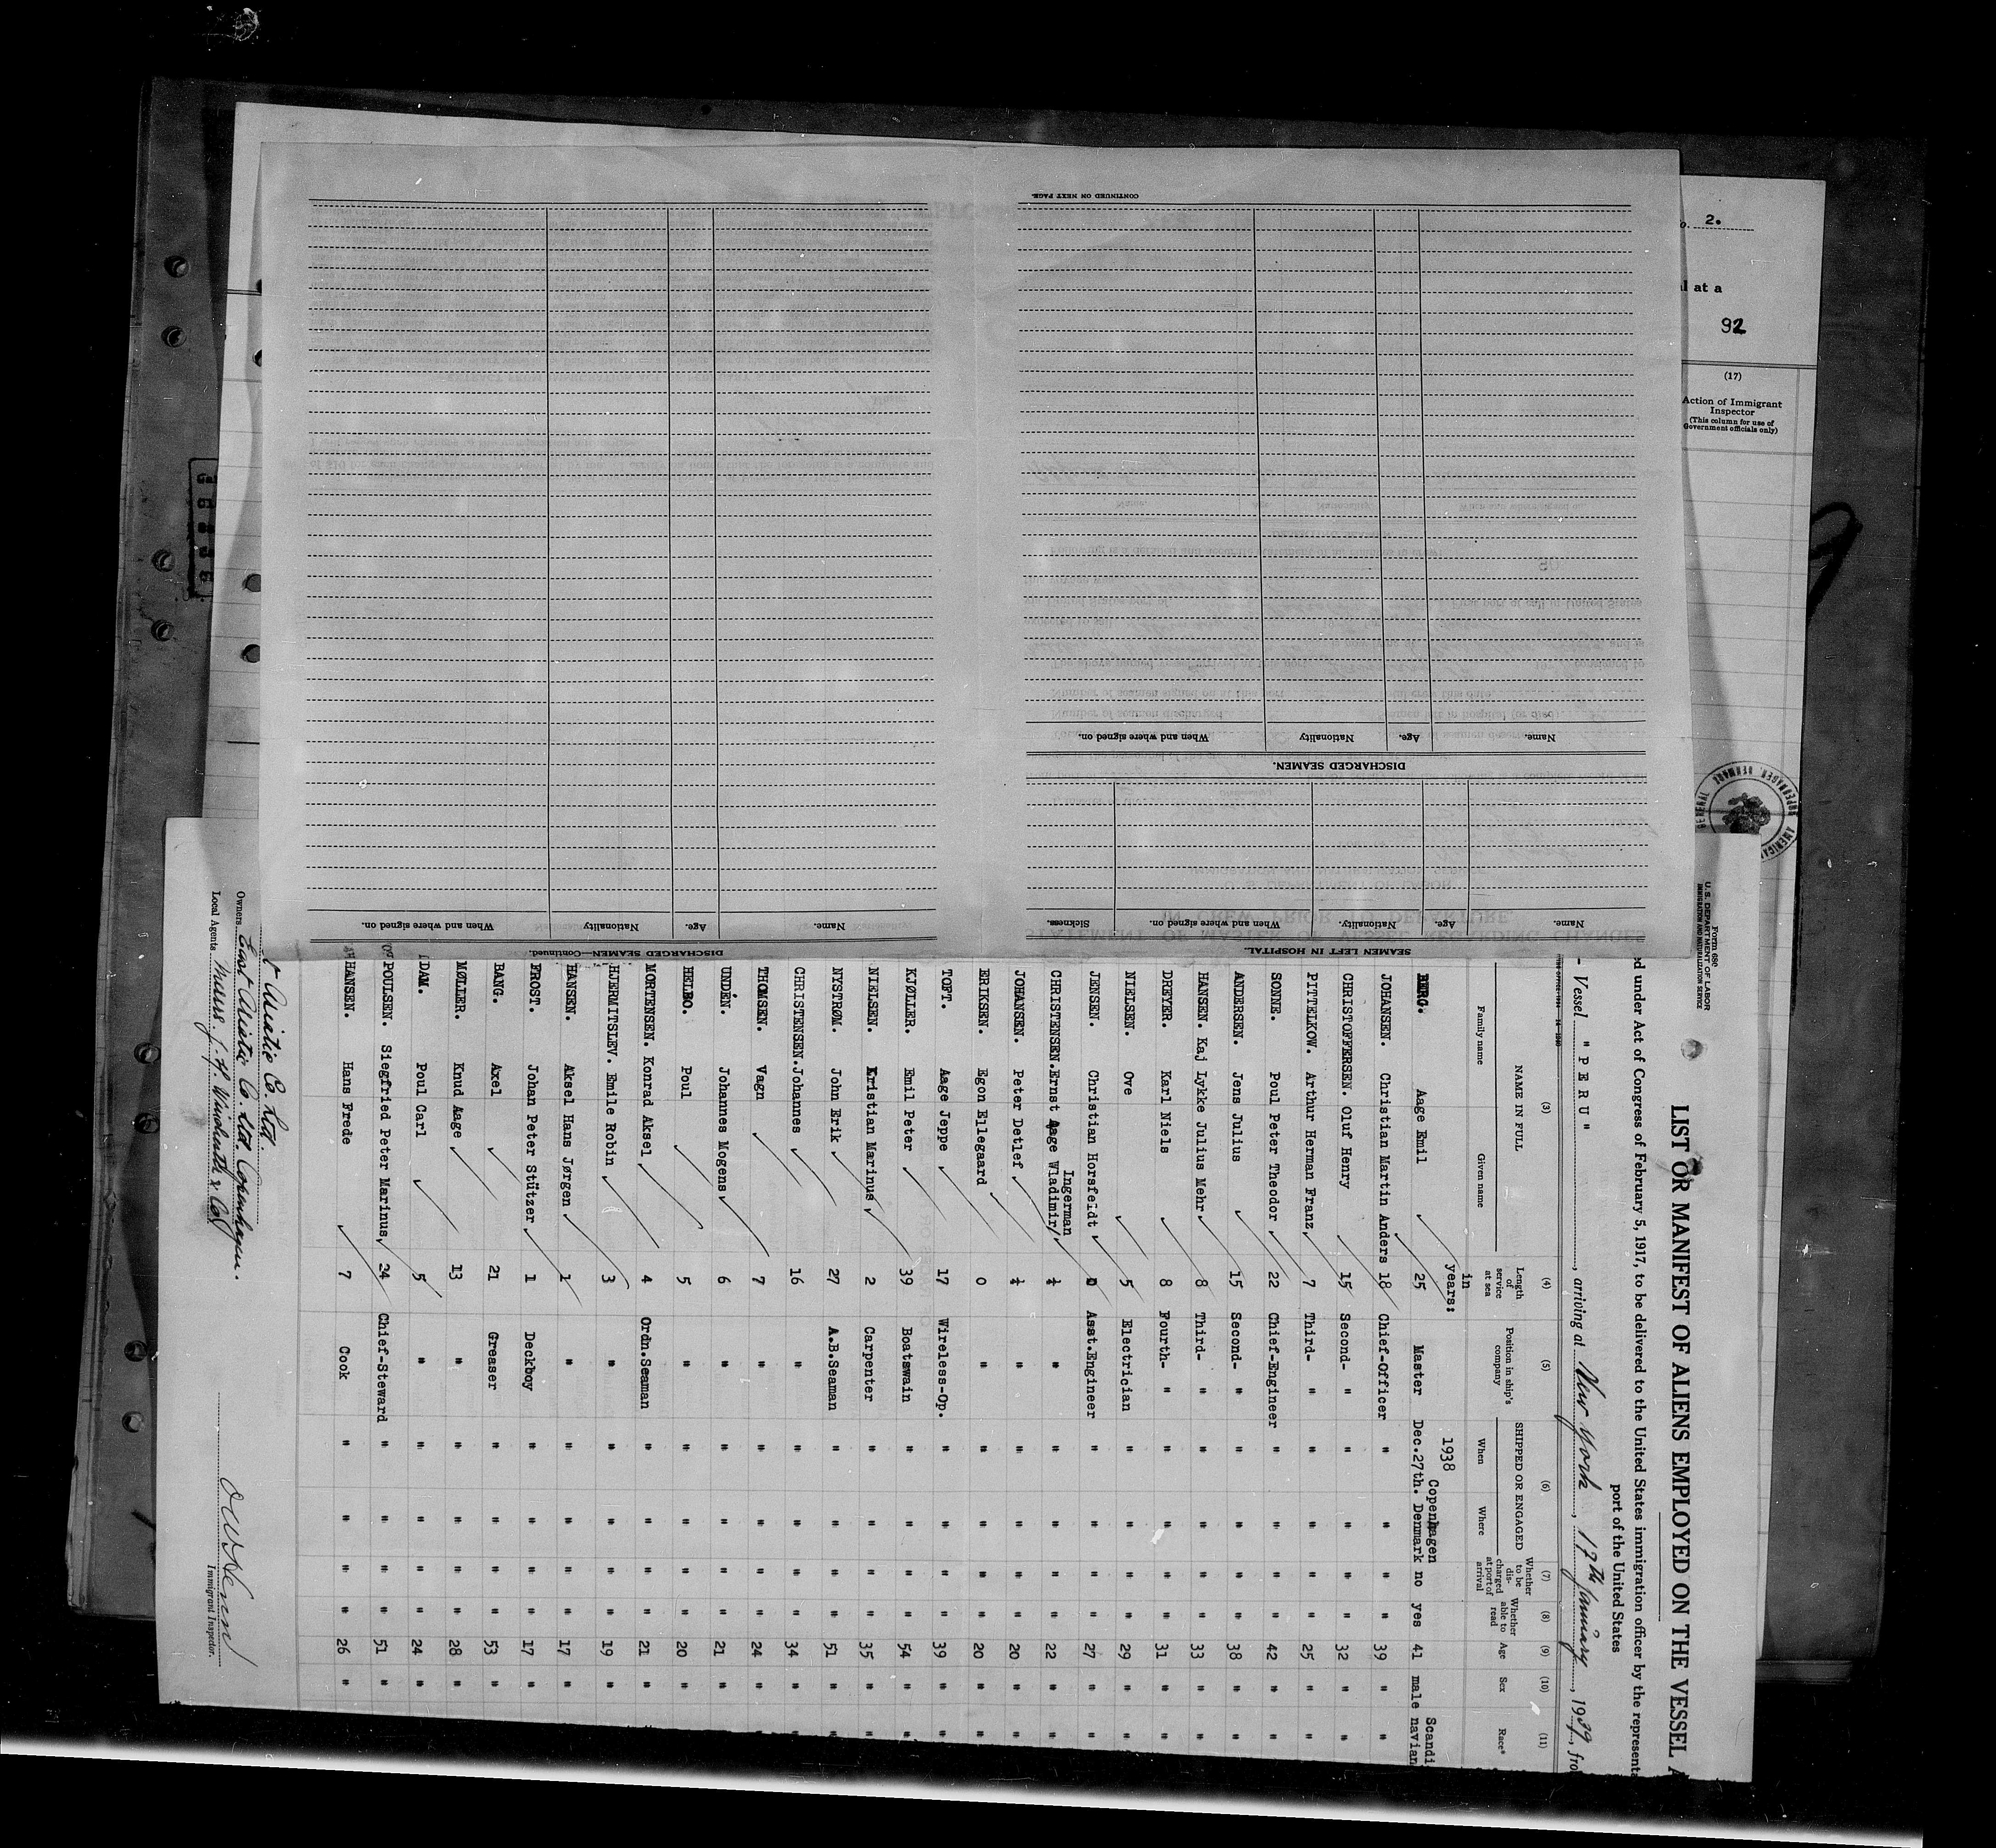 2.
al at a
92
(17)
Action of Immigrant
Inspector
(This column for use of
Government officials only)
CONTINUED ON NEXT PAGE.
Name. Age. Nationality When and where signed on.
DISCHARGED SEAMEN.
Name. Age. Nationality. When and where signed on. Sickness.
SEAMEN LEFT IN HOSPITAL.
Name. Age. Nationality When and where signed on.
DISCHARGED SEAMEN—Continued.
Form 680
U. S. DEPARTMENT OF LABOR
IMMIGRATION AND NATURALIZATION SERVICE
LIST OR MANIFEST OF ALIENS EMPLOYED ON THE VESSEL A
ed under Act of Congress of February 5, 1917, to be delivered to the United States immigration officer by the representa
port of the United States
Vessel "PERU", arriving at New York, 17th January, 1939, fro
(3) (4) (5) (6) (7) (8) (9) (10) (11)
NAME IN FULL Length of service at sea Position in ship's company SHIPPED OR ENGAGED Whether to be discharged at port of arrival Whether able to read Age Sex Race*
Family name Given name When Where
in years: 1938 Copenhagen Scandi
BERG. Aage Emil 25 Master Dec.27th. Denmark no yes 41 male navian
JOHANSEN. Christian Martin Anders 18 Chief-Officer " " " " 39 " "
CHRISTOFFERSEN. Oluf Henry 15 Second- " " " " " 32 " "
PITTELKOW. Arthur Herman Franz 7 Third- " " " " " 25 " "
SONNE. Poul Peter Theodor 22 Chief-Engineer " " " " 42 " "
ANDERSEN. Jens Julius 15 Second- " " " " " 38 " "
HANSEN. Kaj Lykke Julius Mehr 8 Third- " " " " " 33 " "
DREYER. Karl Niels 8 Fourth- " " " " " 31 " "
NIELSEN. Ove 5 Electrician " " " " 29 " "
JENSEN. Christian Horsfeldt 0 Asst.Engineer " " " " 27 " "
Ingerman
CHRISTENSEN. Ernst Aage Wladimir ½ " " " " " 22 " "
JOHANSEN. Peter Detlef ½ " " " " " 20 " "
ERIKSEN. Egon Ellegaard 0 " " " " " 20 " "
TOFT. Aage Jeppe 17 Wireless-Op. " " " " 39 " "
KJØLLER. Emil Peter 39 Boatswain " " " " 54 " "
NIELSEN. Kristian Marinus 2 Carpenter " " " " 35 " "
NYSTRØM. John Erik 27 A.B.Seaman " " " " 51 " "
CHRISTENSEN. Johannes 16 " " " " " 34 " "
THOMSEN. Vagn 7 " " " " " 24 " "
UNDÉN. Johannes Mogens 6 " " " " " 21 "
HELBO. Poul 5 " " " " " 20 "
MORTENSEN. Konrad Aksel 4 Ordn.Seaman " " " " 21 "
HJERMITSLEV. Emile Robin 3 " " " " " 19 "
HANSEN. Aksel Hans Jørgen 1 " " " " " 17 "
FROST. Johan Peter Stützer 1 Deckboy " " " " 17 "
BANG. Axel 21 Greaser " " " " 53 "
MØLLER. Knud Aage 13 " " " " " 28 "
DAM. Poul Carl 5 " " " " " 24 "
POULSEN. Siegfried Peter Marinus 34 Chief-Steward " " " " 51 "
HANSEN. Hans Frede 7 Cook " " " " 26 "
t Asiatic Co. Ltd.
Owners East Asiatic Co. Ltd Copenhagen.
Local Agents Messrs J. H. Winchester & Co
Immigrant Inspector.